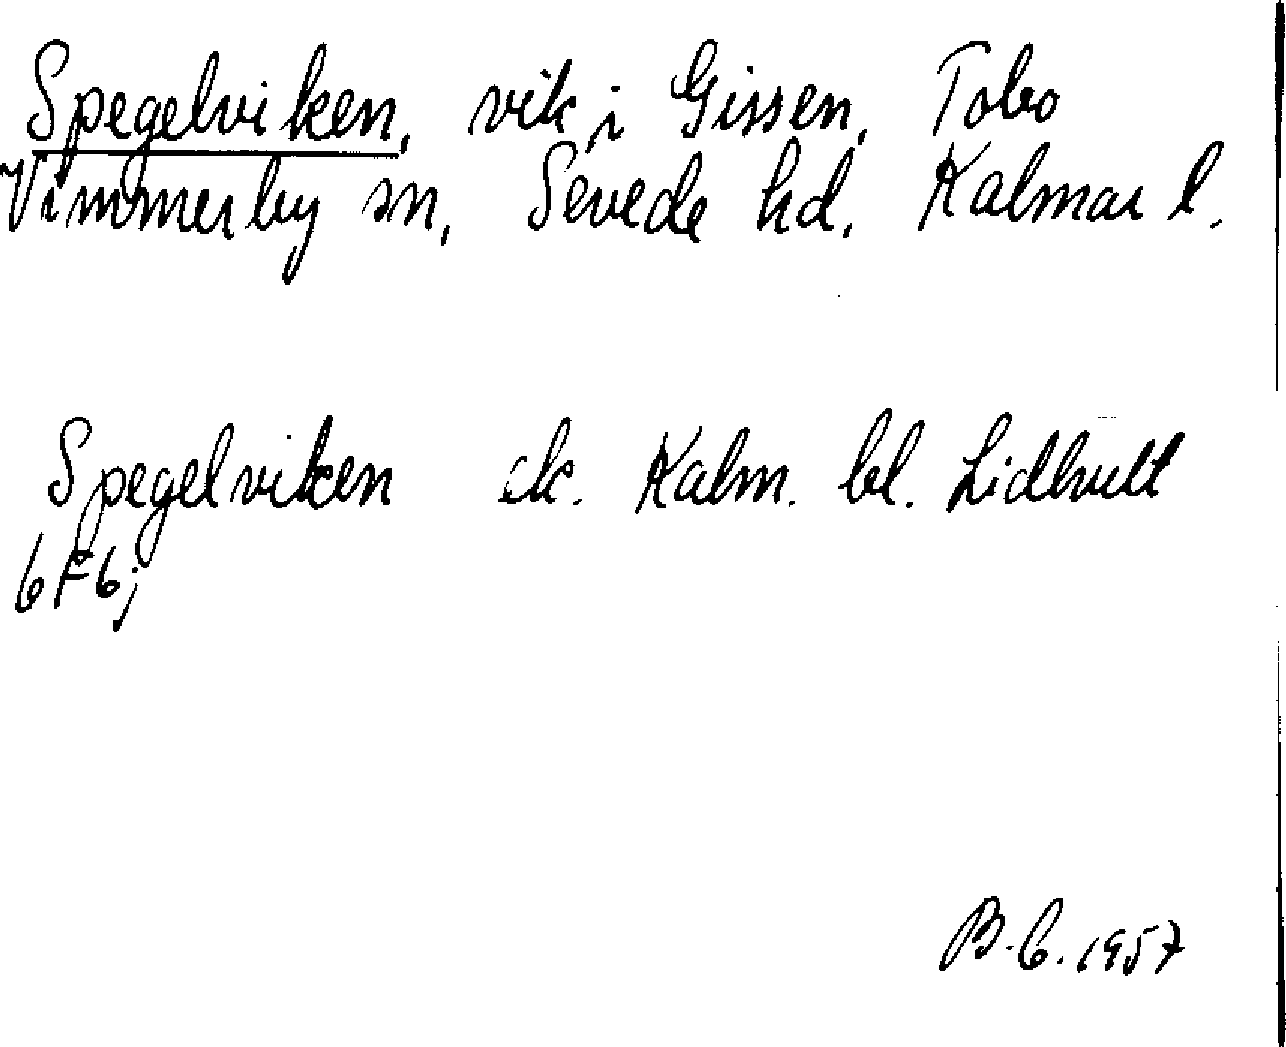 Spegelviken, vik i Gissen, Tobo
Vimmerby sn, Sevede hd. Kalmar l.
Spegelviken ek. Kalm. bl. Lidhult
6F6j
B.C. 1957